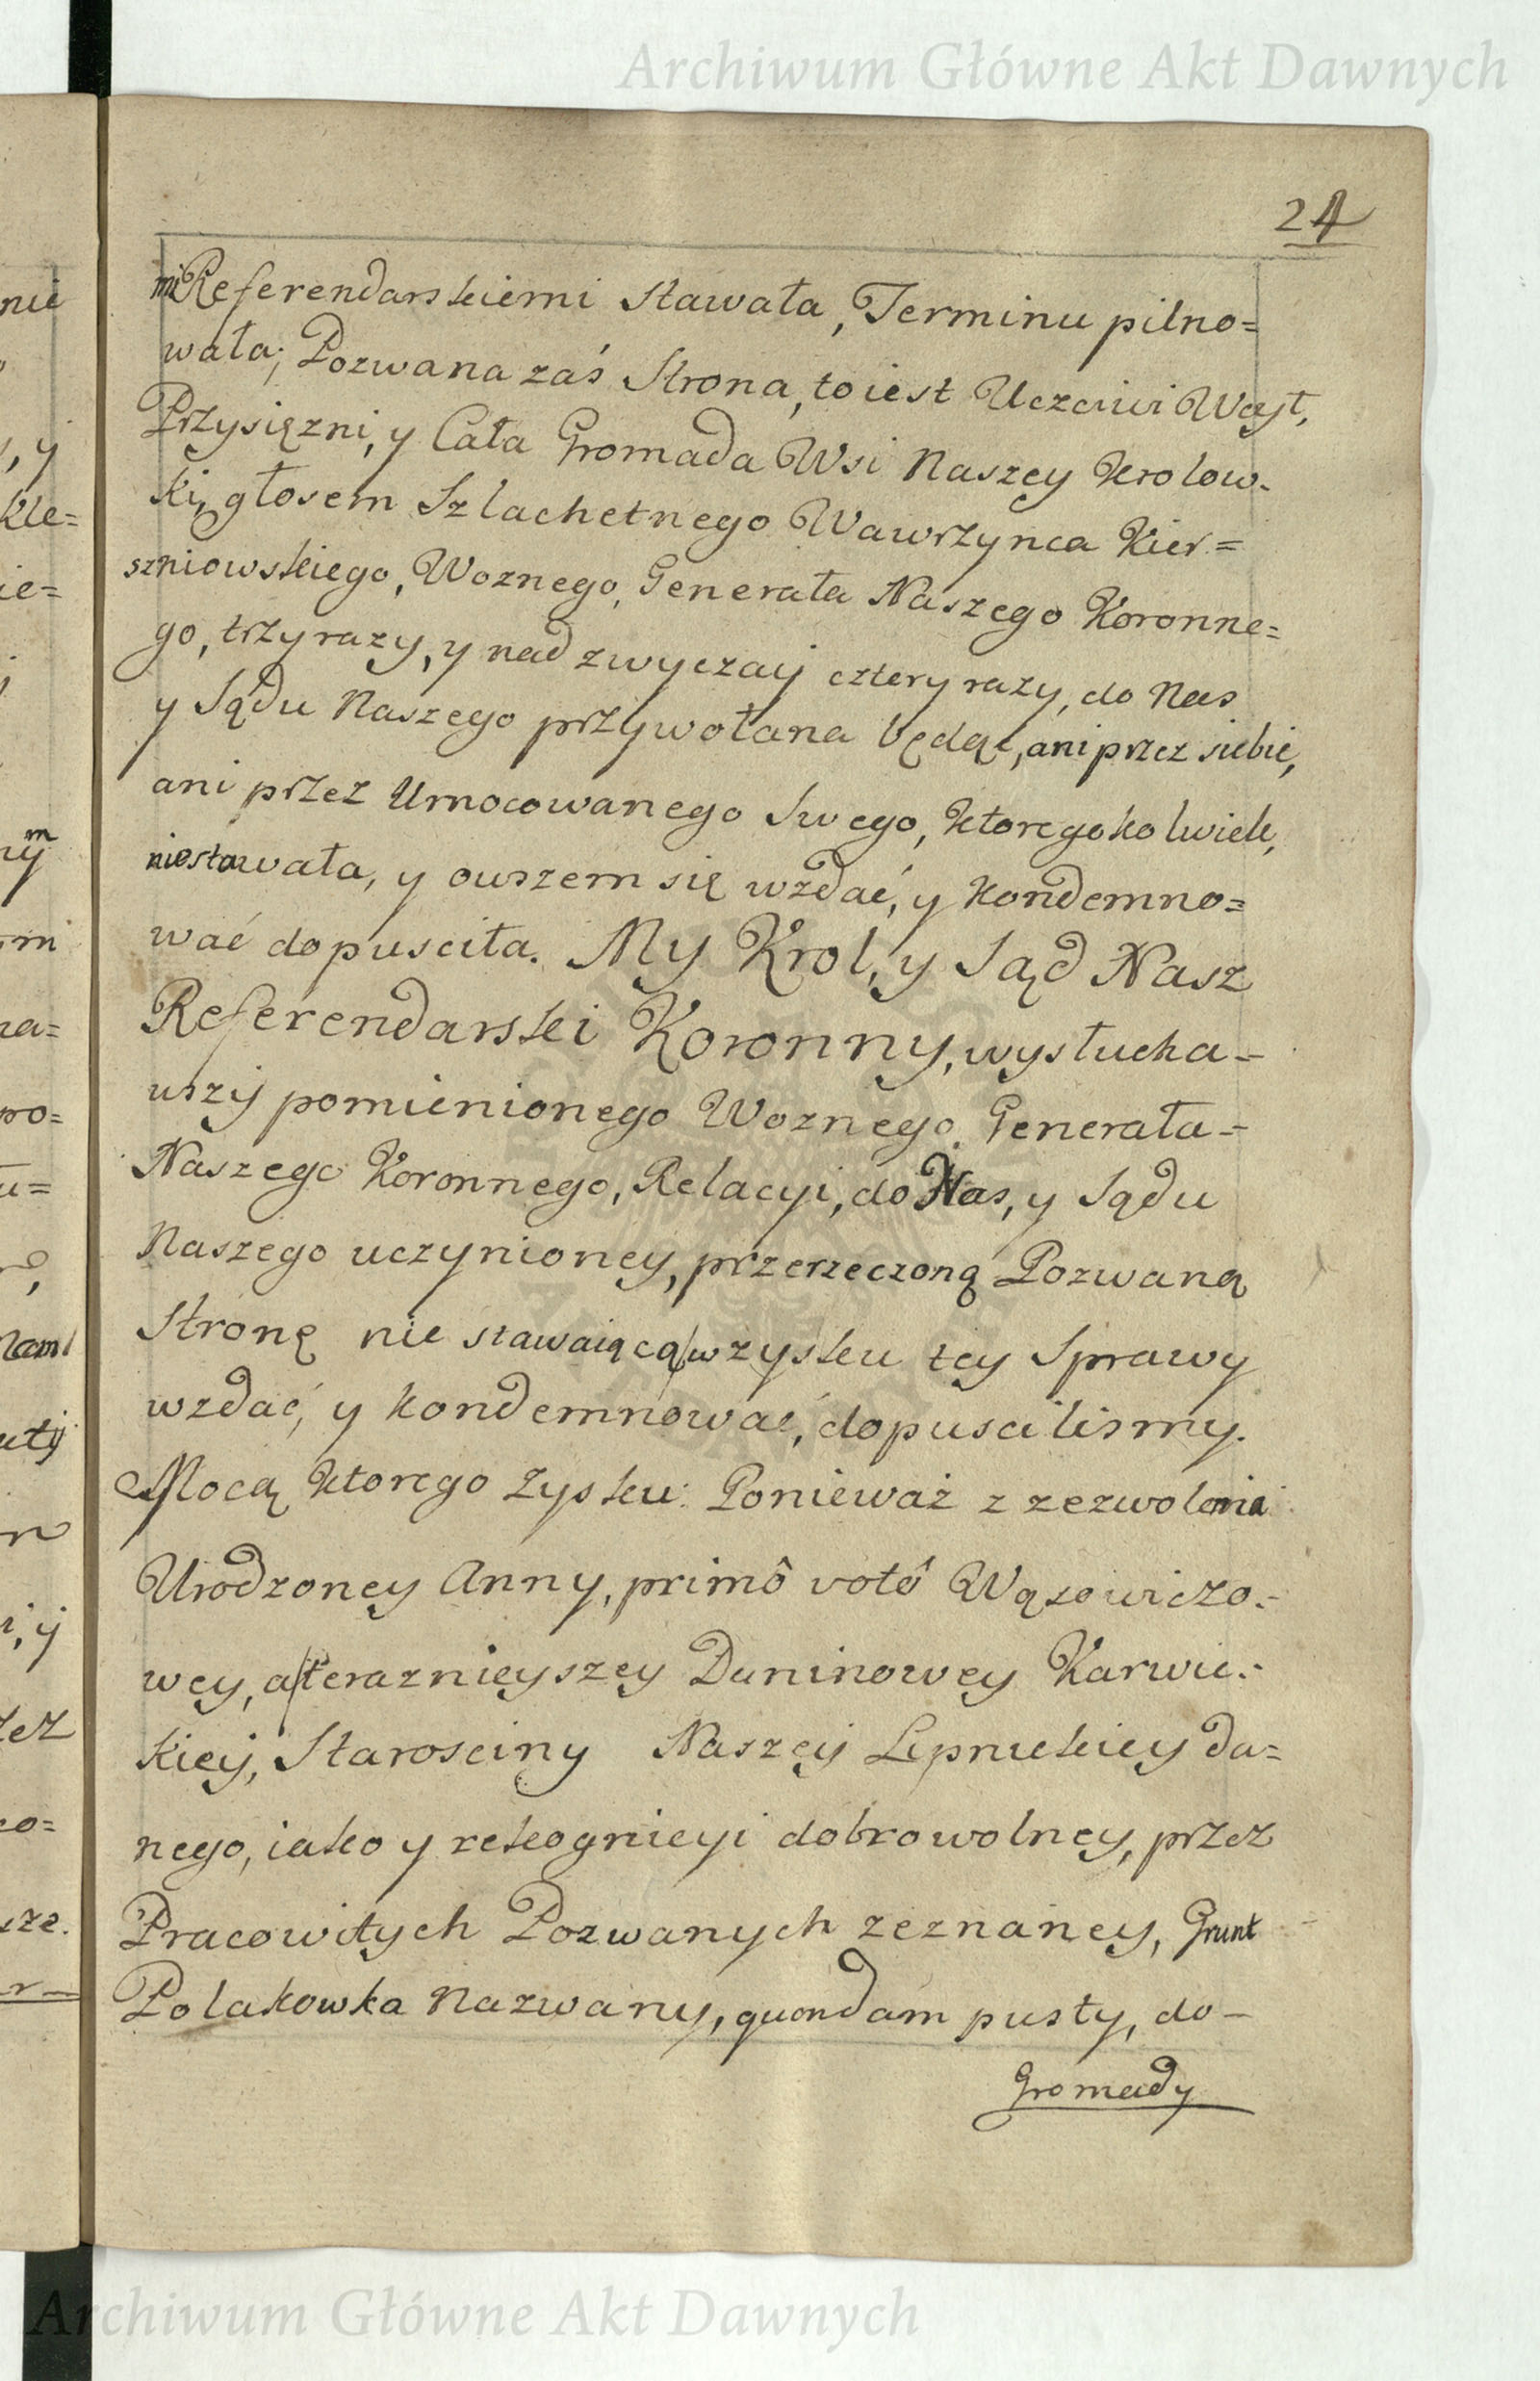 Archiwum Główne Akt Dawnych
24
mi Referendarskiemi stawała, Terminu pilno=
wała; Pozwana zaś Strona, to iest Uczciwi Woyt,
Przysięzni, y Cała Gromada Wsi Naszey Krolow-
ki, głosem Szlachetnego Wawrzynca Kier=
szniowskiego, Woznego, Generała Naszego Koronne=
go, trzy razy, y nad zwyczaij cztery razy, do Nas
y Sądu Naszego przywołana będąc, ani przez siebie,
ani przez Umocowanego Swego, ktoregokolwiek,
niestawała, y owszem się wzdać, y kondemno=
wać dopusciła. My Krol, y Sąd Nasz
Referendarski Koronny, wysłucha-
wszy pomienionego Woznego, Generała-
Naszego Koronnego, Relacyi, do Nas, y Sądu
Naszego uczynioney, przerzeczoną Pozwaną
Stronę nie stawaiącą w zysku tey Sprawy
wzdać, y kondemnować, dopuscilismy.
Mocą ktorego Zysku: Ponieważ z zezwolenia
Urodzoney Anny, primô votô Wąsowiczo-
wey, a teraznieyszey Duninowey Karwic-
kiey, Starosciny Naszey Lipnickiey da=
nego, iako y rekognicyi dobrowolney, przez
Pracowitych Pozwanych zeznaney, Grunt
Polakowka nazwany, quondam pusty, do-
Gromady
nie
, y
kle=
ie=
ym
mi
na=
wo=
u=
Nami
i, y
co=
sze.
Archiwum Główne Akt Dawnych